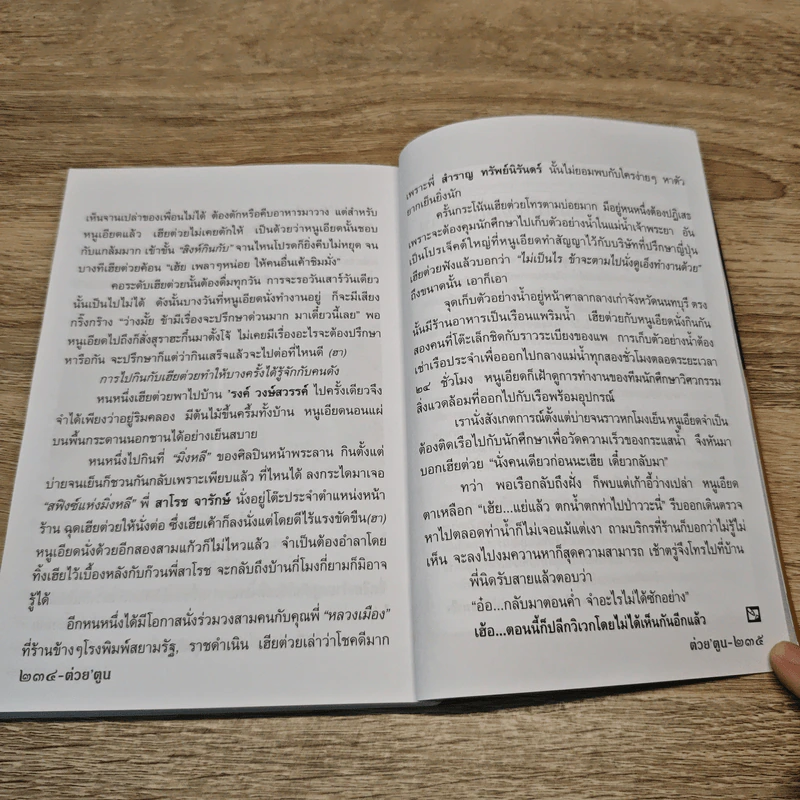 เห็นจานเปล่าของเพื่อนไม่ได้ ต้องตักหรือคีบอาหารมาวาง แต่สำหรับ
หนูเอียดแล้ว เฮียต่วยไม่เคยตักให้ เป็นด้วยว่าหนูเอียดนั้นชอบ
กับแกล้มมาก เข้าขั้น “สิงห์กินกับ” จานไหนโปรดก็ยิ่งคีบไม่หยุด จน
บางทีเฮียต่วยค้อน “เฮ้ย เพลาๆหน่อย ให้คนอื่นเค้าชิมมั่ง”
คอระดับเฮียต่วยนั้นต้องดื่มทุกวัน การจะรอวันเสาร์วันเดียว
นั้นเป็นไปไม่ได้ ดังนั้นบางวันที่หนูเอียดนั่งทำงานอยู่ ก็จะมีเสียง
กริ๊งกร๊าง “ว่างมั้ย ข้ามีเรื่องจะปรึกษาด่วนมาก มาเดี๋ยวนี้เลย” พอ
หนูเอียดไปถึงก็สั่งสุราฮะกึ๋นมาตั้งโจ้ ไม่เคยมีเรื่องอะไรจะต้องปรึกษา
หารือกัน จะปรึกษาก็แต่ว่ากินเสร็จแล้วจะไปต่อที่ไหนดี (ฮา)
การไปกินกับเฮียต่วยทำให้บางครั้งได้รู้จักกับคนดัง
หนหนึ่งเฮียต่วยพาไปบ้าน ’รงค์ วงษ์สวรรค์ ไปครั้งเดียวจึง
จำได้เพียงว่าอยู่ริมคลอง มีต้นไม้ขึ้นครึ้มทั้งบ้าน หนูเอียดนอนแผ่
บนพื้นกระดานนอกชานได้อย่างเย็นสบาย
หนหนึ่งไปกินที่ “มิ่งหลี” ของศิลปินหน้าพระลาน กินตั้งแต่
บ่ายจนเย็นก็ชวนกันกลับเพราะเพียบแล้ว ที่ไหนได้ ลงกระไดมาเจอ
“สฟิงซ์แห่งมิ่งหลี” พี่ สาโรช จารักษ์ นั่งอยู่โต๊ะประจำตำแหน่งหน้า
ร้าน ฉุดเฮียต่วยให้นั่งต่อ ซึ่งเฮียเค้าก็ลงนั่งแต่โดยดีไร้แรงขัดขืน(ฮา)
หนูเอียดนั่งด้วยอีกสองสามแก้วก็ไม่ไหวแล้ว จำเป็นต้องอำลาโดย
ทิ้งเฮียไว้เบื้องหลังกับก๊วนพี่สาโรช จะกลับถึงบ้านกี่โมงกี่ยามก็มิอาจ
รู้ได้
อีกหนหนึ่งได้มีโอกาสนั่งร่วมวงสามคนกับคุณพี่ “หลวงเมือง”
ที่ร้านข้างๆโรงพิมพ์สยามรัฐ, ราชดำเนิน เฮียต่วยเล่าว่าโชคดีมาก
๒๓๔-ต่วย’ตูน
เพราะพี่ สำราญ ทรัพย์นิรันดร์ นั้นไม่ยอมพบกับใครง่ายๆ หาตัว
ยากเย็นยิ่งนัก
ครั้นกระโน้นเฮียต่วยโทรตามบ่อยมาก มีอยู่หนหนึ่งต้องปฏิเสธ
เพราะจะต้องคุมนักศึกษาไปเก็บตัวอย่างน้ำในแม่น้ำเจ้าพระยา อัน
เป็นโปรเจ็คต์ใหญ่ที่หนูเอียดทำสัญญาไว้กับบริษัทที่ปรึกษาญี่ปุ่น
เฮียต่วยฟังแล้วบอกว่า “ไม่เป็นไร ข้าจะตามไปนั่งดูเอ็งทำงานด้วย”
ถึงขนาดนั้น เอาก็เอา
จุดเก็บตัวอย่างน้ำอยู่หน้าศาลากลางเก่าจังหวัดนนทบุรี ตรง
นั้นมีร้านอาหารเป็นเรือนแพริมน้ำ เฮียต่วยกับหนูเอียดนั่งกินกัน
สองคนที่โต๊ะเล็กชิดกับราวระเบียงของแพ การเก็บตัวอย่างน้ำต้อง
เช่าเรือประจำเพื่อออกไปกลางแม่น้ำทุกสองชั่วโมงตลอดระยะเวลา
๒๔ ชั่วโมง หนูเอียดก็เฝ้าดูการทำงานของทีมนักศึกษาวิศวกรรม
สิ่งแวดล้อมที่ออกไปกับเรือพร้อมอุปกรณ์
เรานั่งสังเกตการณ์ตั้งแต่บ่ายจนราวหกโมงเย็น หนูเอียดจำเป็น
ต้องติดเรือไปกับนักศึกษาเพื่อวัดความเร็วของกระแสน้ำ จึงหันมา
บอกเฮียต่วย “นั่งคนเดียวก่อนนะเฮีย เดี๋ยวกลับมา”
ทว่า พอเรือกลับถึงฝั่ง ก็พบแต่เก้าอี้ว่างเปล่า หนูเอียด
ตาเหลือก “เฮ้ย...แย่แล้ว ตกน้ำตกท่าไปป่าววะนี่” รีบออกเดินตรวจ
หาไปตลอดท่าน้ำก็ไม่เจอแม้แต่เงา ถามบริกรที่ร้านก็บอกว่าไม่รู้ไม่
เห็น จะลงไปงมควานหาก็สุดความสามารถ เช้าตรู่จึงโทรไปที่บ้าน
พี่นิดรับสายแล้วตอบว่า
“อ๋อ...กลับมาตอนค่ำ จำอะไรไม่ได้ซักอย่าง”
เฮ้อ...ตอนนี้ก็ปลีกวิเวกโดยไม่ได้เห็นกันอีกแล้ว
ต่วย’ตูน-๒๓๕